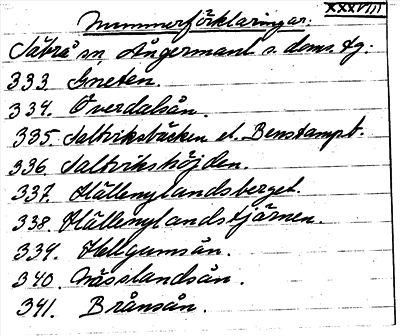 XXXVIII
Nummerförklaringar:
Säbrå sn, Ångermanl. s. doms. tg:
333. Gneten.
334. Överdalsån.
335. Saltviksbäcken el. Benstampb.
336. Saltvikshöjden.
337. Hällenylandsberget.
338. Hällenylandstjärnen.
339. Hellgumsån.
340. Nässlandsån.
341. Brånsån.